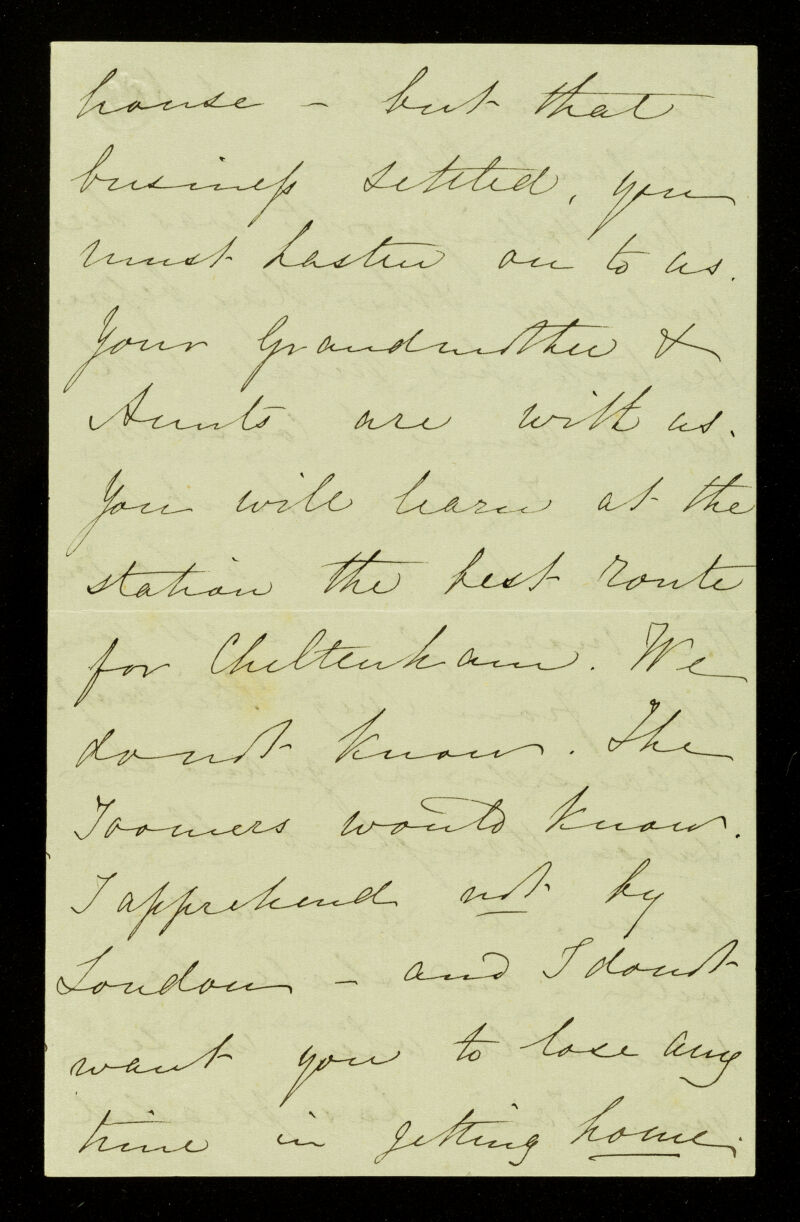 house - but that
business settled, you
must hasten on to us.
Your Grandmother &
Aunts are with us.
You will learn at the
station the best route
for Cheltenham. We
do not know. The
Toomers would know.
I apprehend not by
London - and I do not
want you to lose any
time in getting home.